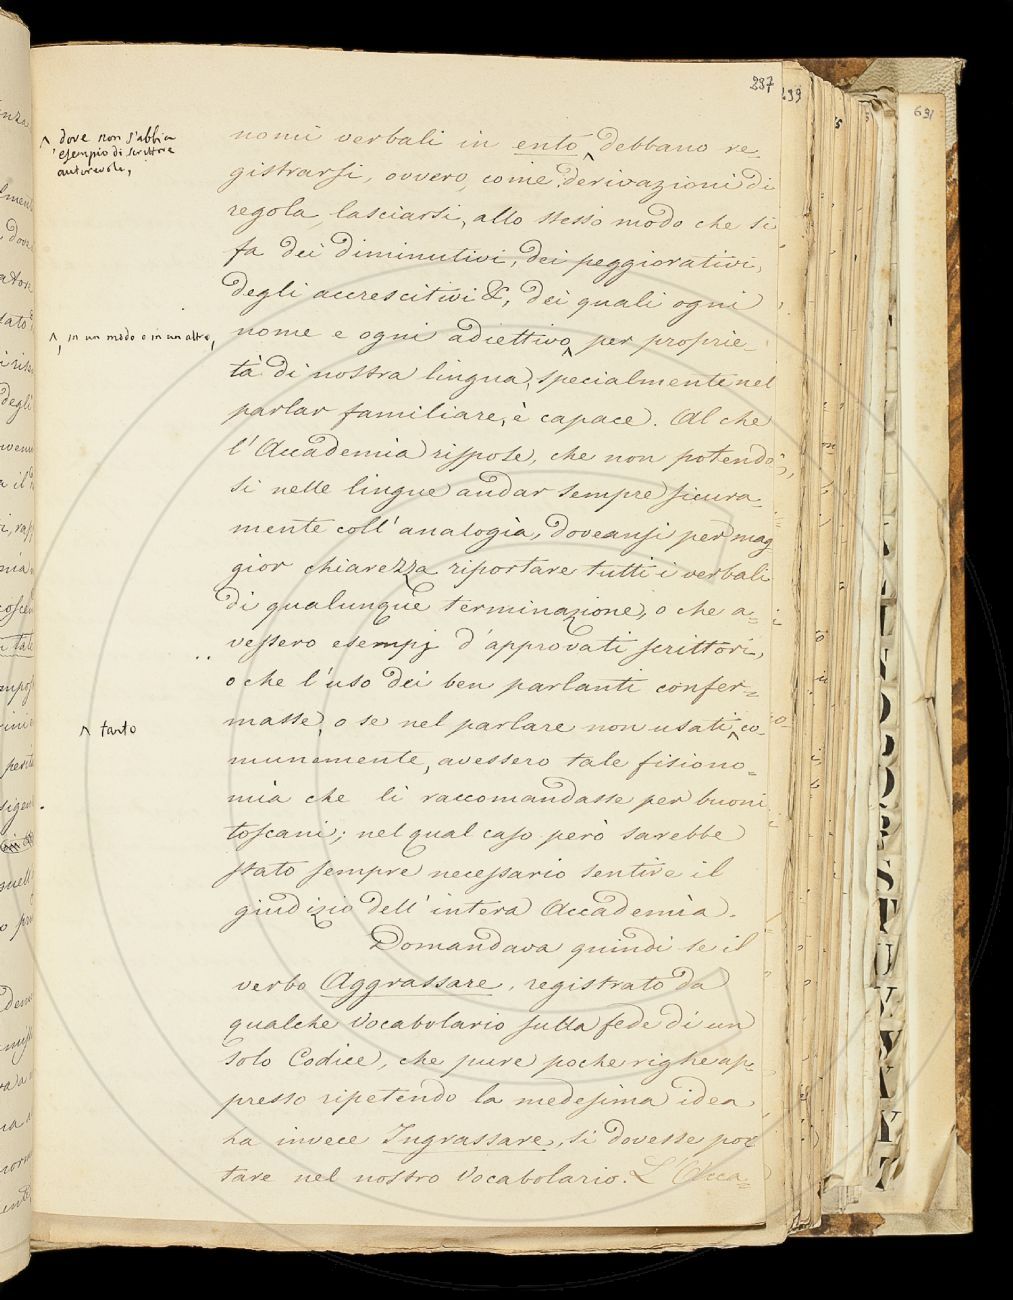 237
239
631
^ dove non s'abbia
esempio di scrittore
autorevole,
nomi verbali in ento ^ debbano re-
gistrarsi, ovvero, come derivazioni di
regola, lasciarsi, allo stesso modo che si
fa dei diminutivi, dei peggiorativi,
degli accrescitivi &, dei quali ogni
^, in un modo o in un altro,
nome e ogni adiettivo ^ per proprie-
tà di nostra lingua, specialmente nel
parlar familiare, è capace. Al che
l'Accademia rispose, che non potendo
si nelle lingue andar sempre sicura-
mente coll'analogia, doveansi per mag
gior chiarezza riportare tutti i verbali
di qualunque terminazione, o che a-
vessero esempj d'approvati scrittori,
o che l'uso dei ben parlanti confer-
masse, o se nel parlare non usati ^ co-
^ tanto
munemente, avessero tale fisiono-
mia che li raccomandasse per buoni
toscani; nel qual caso però sarebbe
stato sempre necessario sentire il
giudizio dell'intera Accademia.
Domandava quindi se il
verbo Aggrassare, registrato da
qualche Vocabolario sulla fede di un
solo Codice, che pure poche righe ap-
presso ripetendo la medesima idea
ha invece Ingrassare, si dovesse por
tare nel nostro Vocabolario. L'Acca-